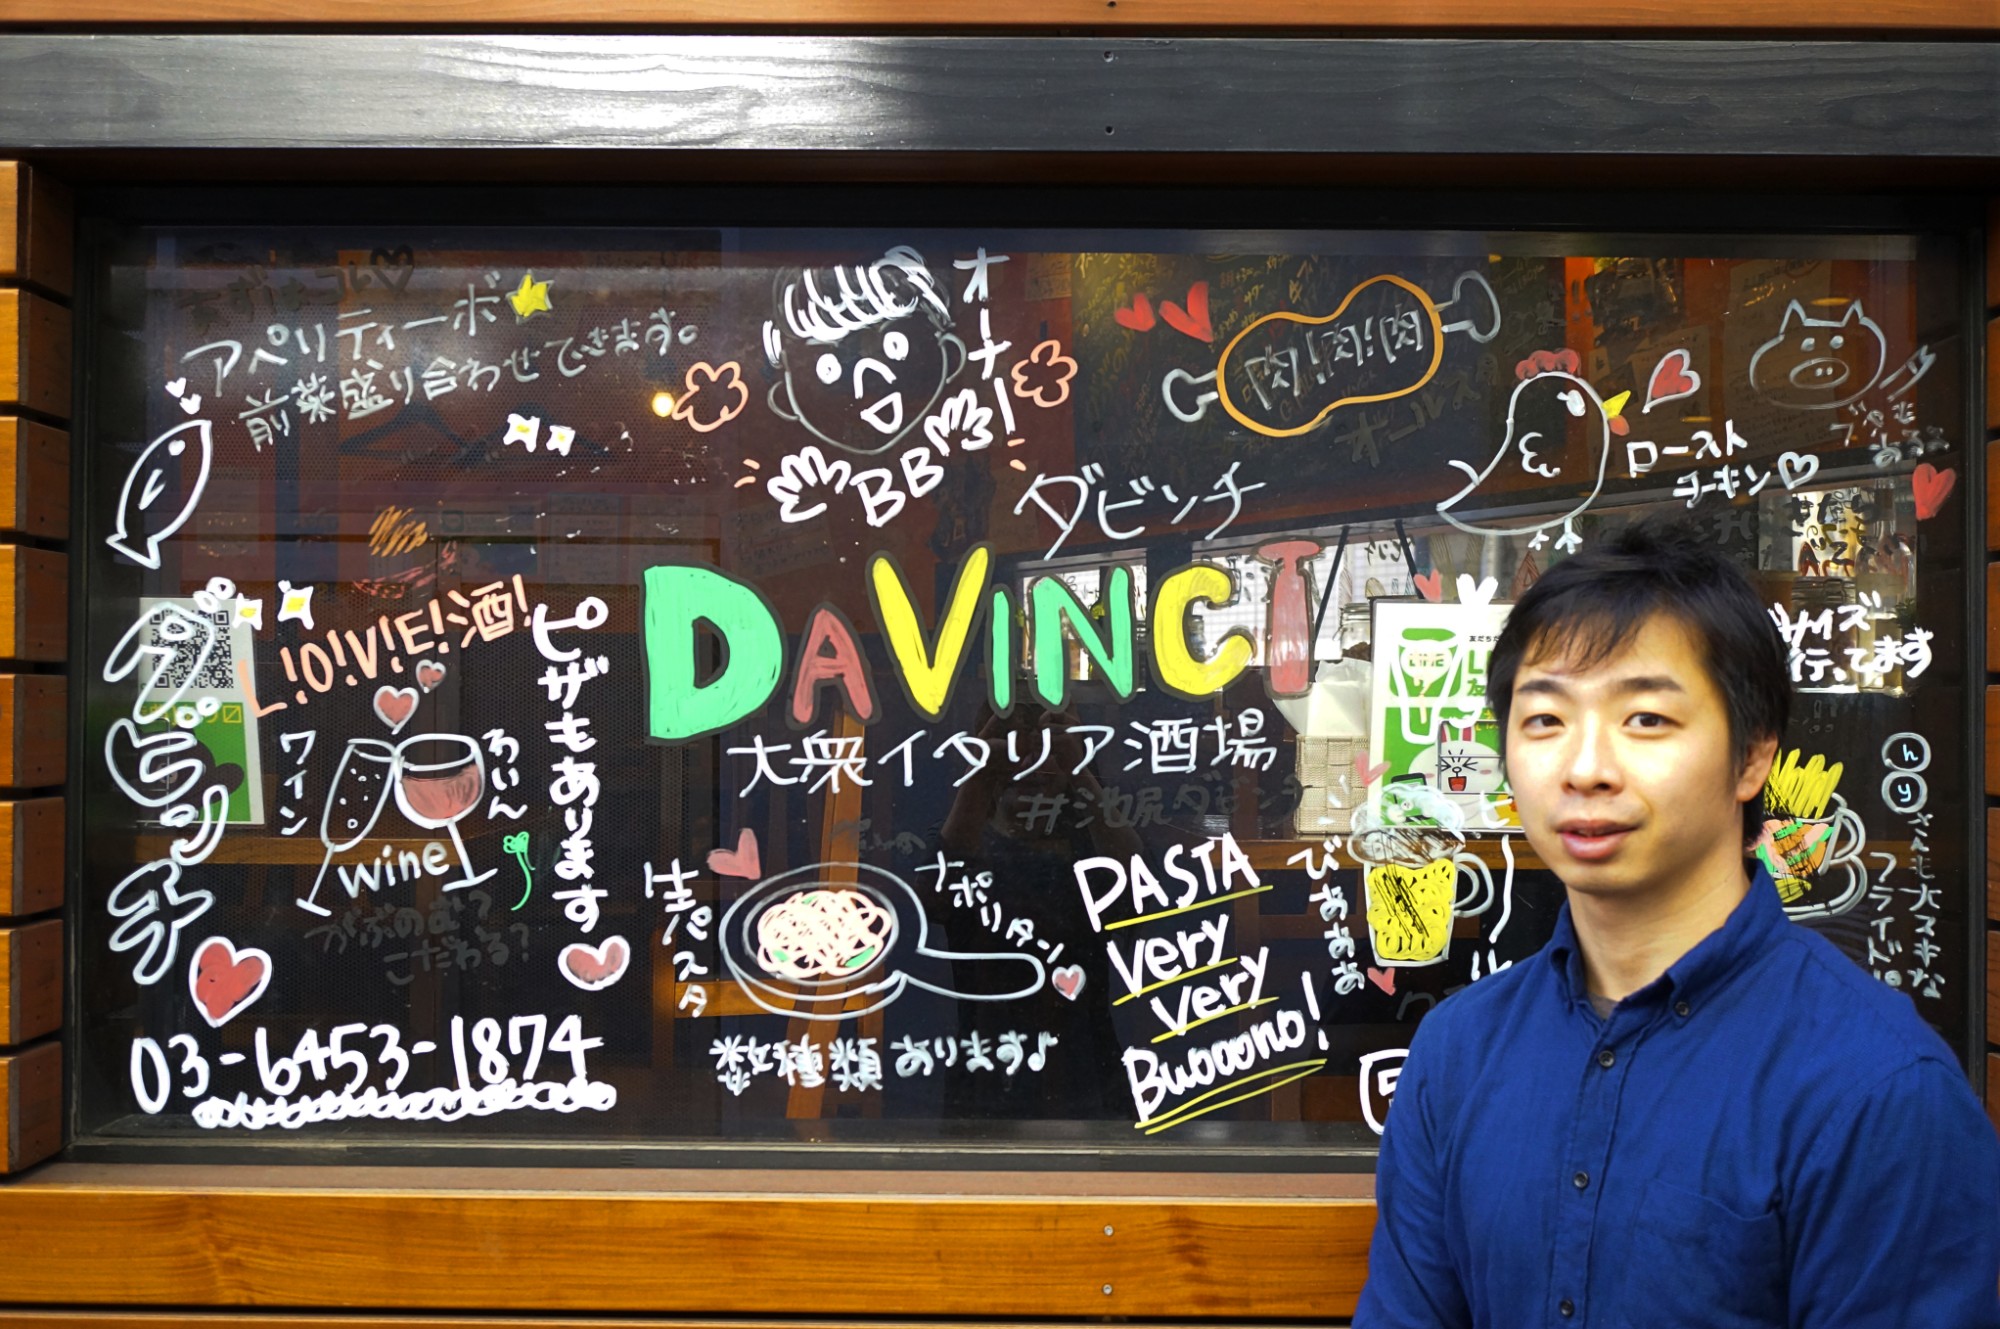 アペリティーボ
前菜盛り合わせできます。
オーナー!
BB
肉!肉!肉
ロースト
チーキン
ダビンチ
DAVINCI
大衆イタリア酒場
#池尻ダビンチ
ダビンチ
L!O!V!E!酒!
ワイン
わいん
wine
がぶのむ?
こだわる?
ピザもあります
03-6453-1874
生パスタ
ナポリタン
数種類あります♪
PASTA
very
very
Buooono!
びぁぁぁ
LINE
サイズ
行ってます
hy
さんも大スキな
フライドポ